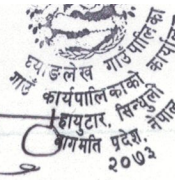 घ्याङलेख गाउँपालिका
गाउँ कार्यपालिकाको कार्या
हायुटार, सिन्धुली
बागमति प्रदेश, नेपाल
२०७३